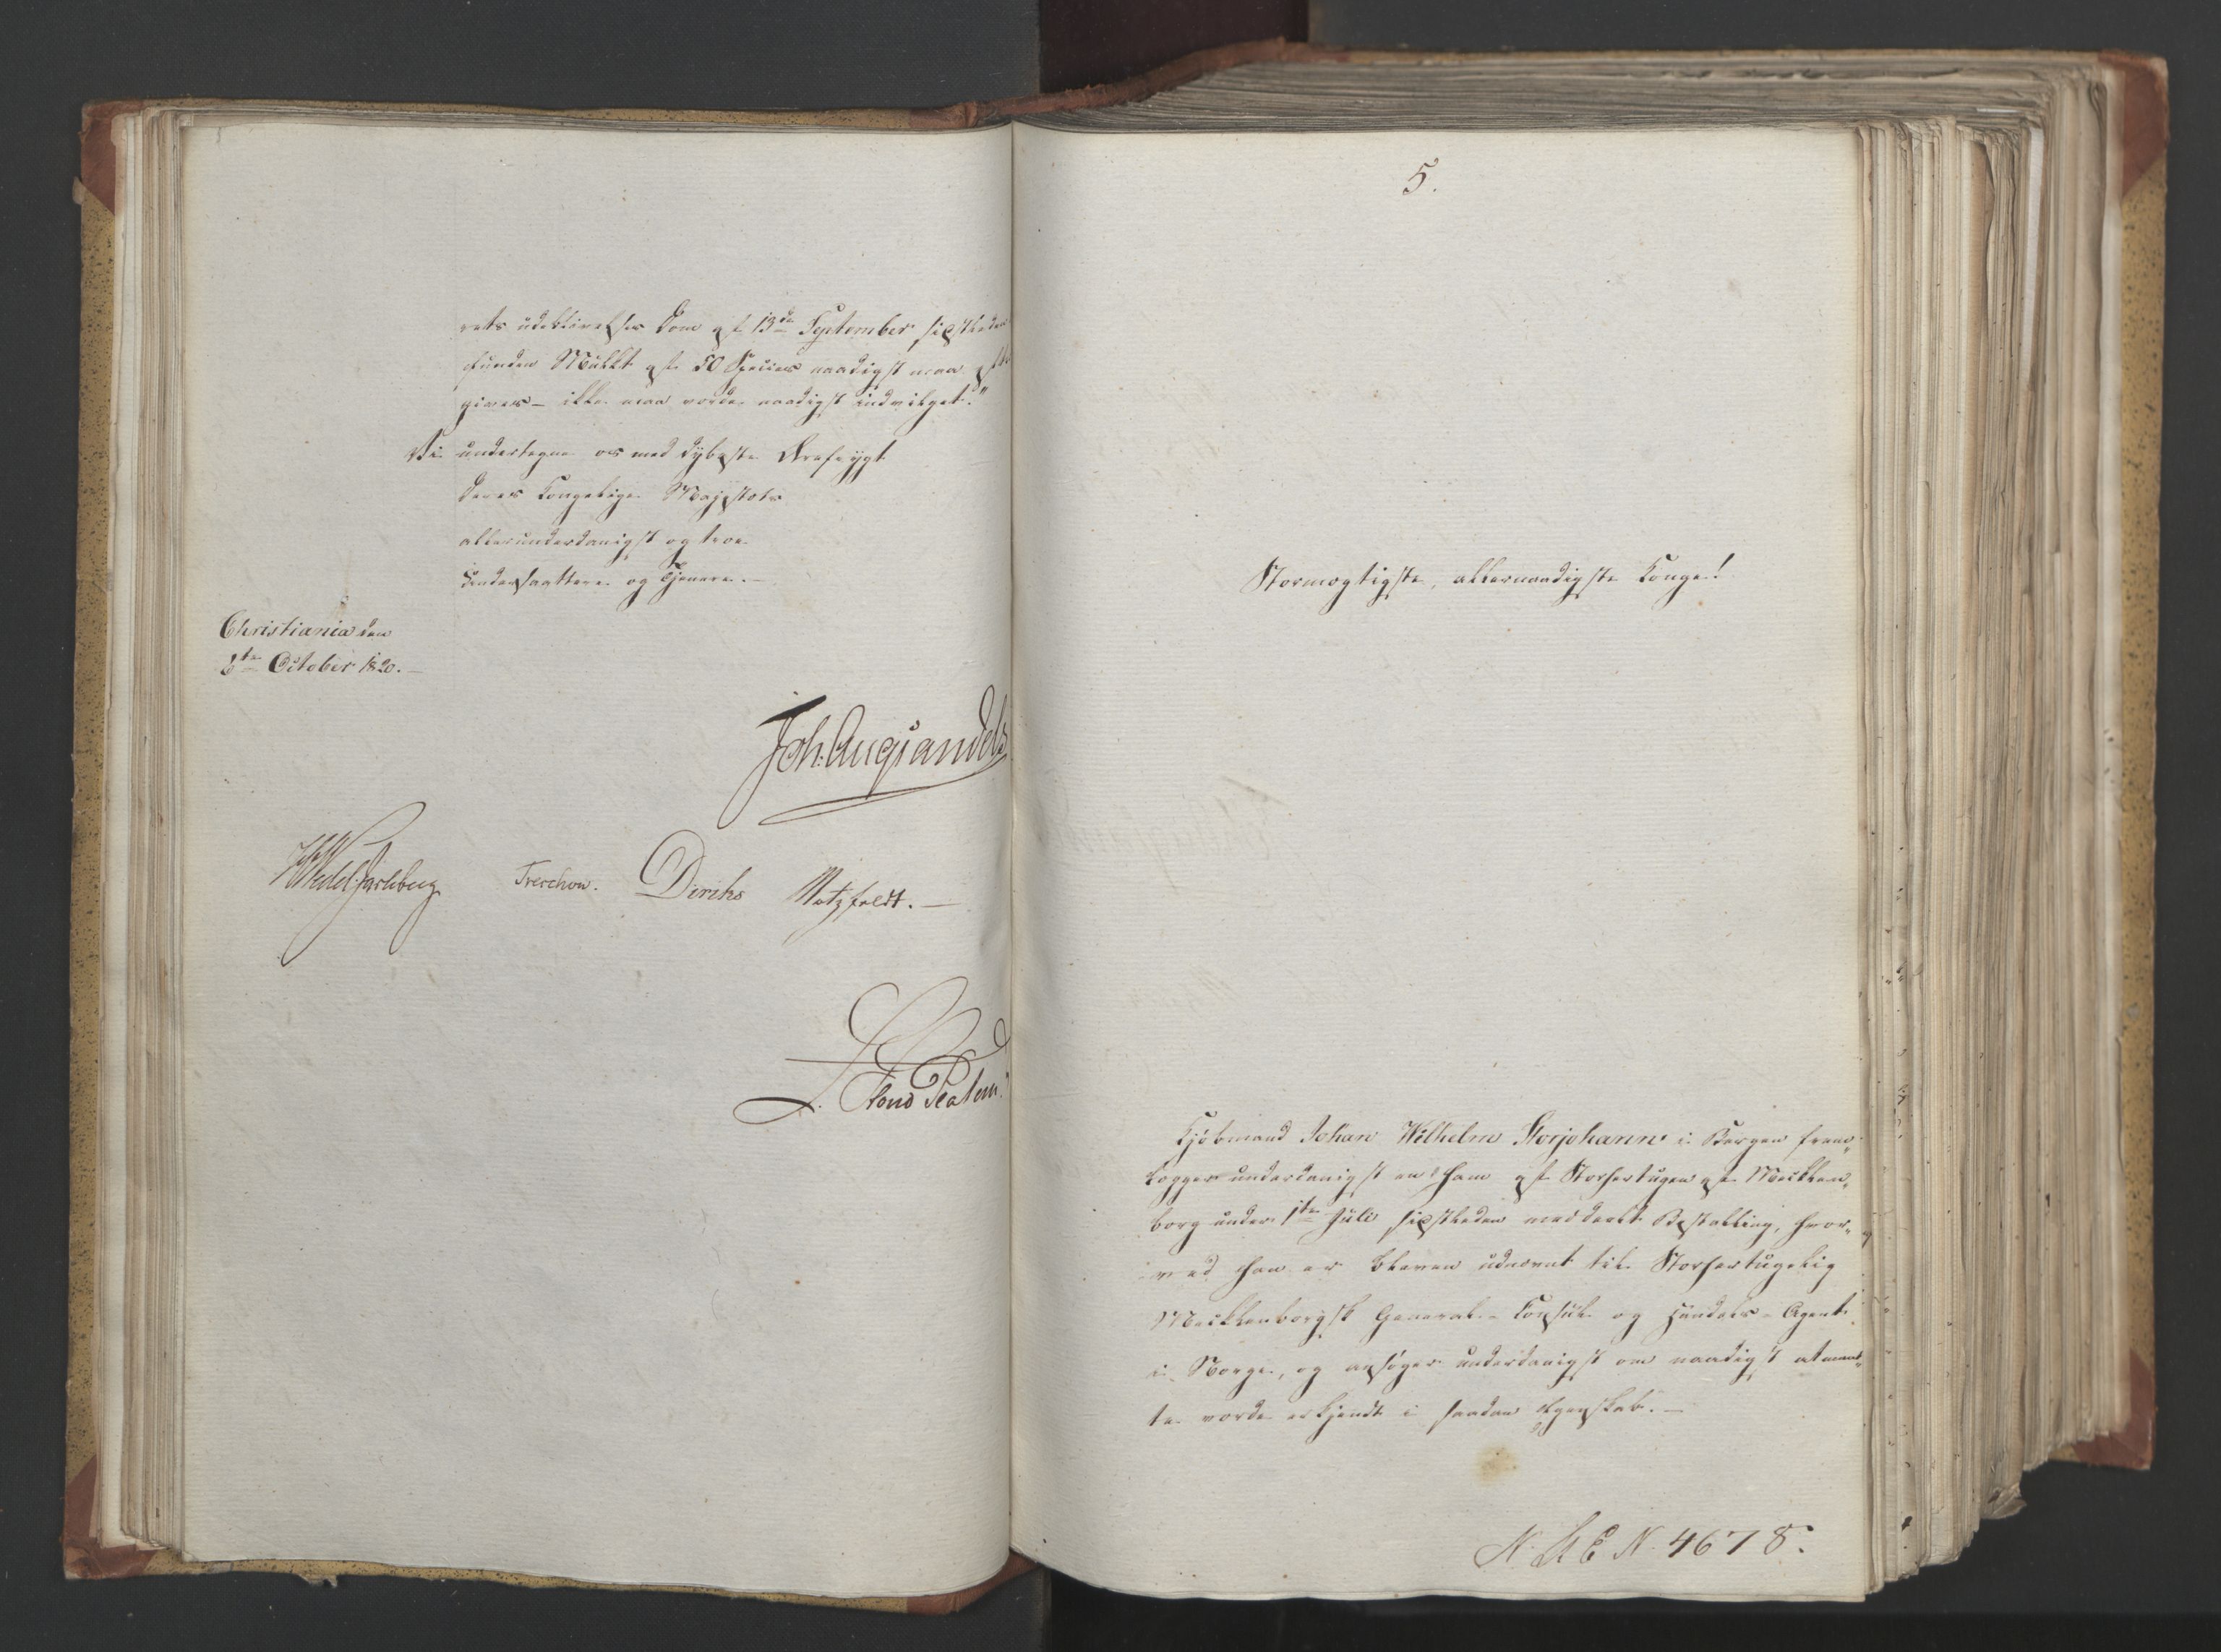 rets Udeblivelses Dom af 13de September sidstleden
funden Mulkt af 50 Species naadigst maa efter
gives – ikke maa vorde naadigst indvilget."
Vi undertegne os med dybeste Ærefrygt
Deres Kongelige Majestæts
allerunderdanigst og troe
Undersaattere og Tjenere. –
Christiania den
6te October 1820. –
Joh. Aug Sandels
HWedel Jarlsberg Treschow. Diriks Motzfeldt. –
L. Stoud Platou
5.
Stormægtigste, allernaadigste Konge!
Kjøbmand Johan Wilhelm Storjohann i Bergen frem„
lægger underdanigst en ham af Storhertugen af Mecklen„
borg under 1te Juli sidstleden meddeelt Bestalling, hvor„
ved han er bleven udnævnt til Storhertugelig
Mecklenborgsk General-Consul og Handels-Agent
i Norge, og ansøger underdanigst om naadigst at maat„
te vorde erkjendt i saadan Egenskab. –
N. A E N. 4678.